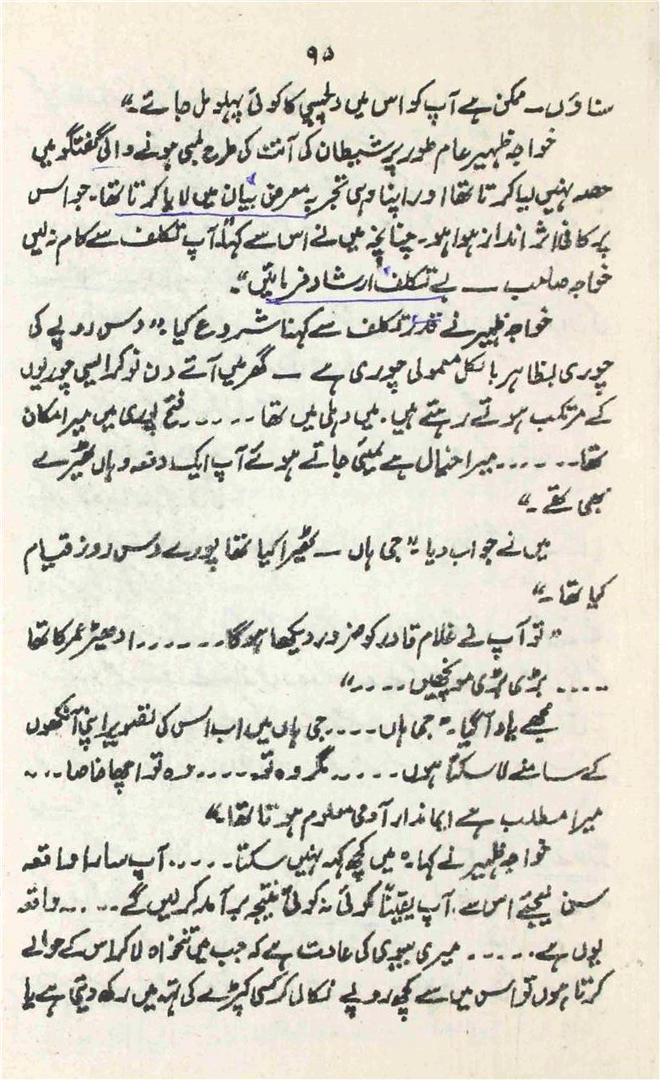 ۹۵
سناؤں۔ ممکن ہے آپ کو اس میں دلچسپی کا کوئی پہلو مل جائے۔"
خواجہ ظہیر عام طور پر شیطان کی آنت کی طرح لمبی ہونے والی گفتگو میں
حصہ نہیں لیا کرتا تھا اور اپنا وہی تجربہ معرضِ بیان میں لایا کرتا تھا۔ جو اس
پر کافی اثر انداز ہوا ہو۔ چنانچہ میں نے اس سے کہا" آپ تکلف سے کام نہ لیں
خواجہ صاحب — بے تکلف ارشاد فرمائیں"۔
خواجہ ظہیر نے قدرے تکلف سے کہنا شروع کیا:" دس روپے کی
چوری بظاہر بالکل معمولی چوری ہے — گھر میں آئے دن نوکر ایسی چوریوں
کے مرتکب ہوتے رہتے ہیں۔ میں دہلی میں تھا ۔۔۔۔۔ فتح پوری میں میرا مکان
تھا ۔۔۔۔۔۔ میرا خیال ہے بمبئی جاتے ہوئے آپ ایک دفعہ وہاں ٹھیرے
بھی تھے۔"
میں نے جواب دیا:" جی ہاں — ٹھیرا کیا تھا پورے دس روز قیام
کیا تھا۔"
" تو آپ نے غلام قادر کو ضرور دیکھا ہوگا ۔۔۔۔۔۔ ادھیڑ عمر کا تھا
۔۔۔۔۔ بڑی بڑی مونچھیں ۔۔۔۔"
مجھے یاد آگیا۔" جی ہاں ۔۔۔۔ جی ہاں میں اب اُس کی تصویر اپنی آنکھوں
کے سامنے لا سکتا ہوں ۔۔۔۔۔ مگر وہ تو ۔۔۔۔۔ وہ تو اچھا خاصا ۔۔۔
میرا مطلب ہے ایماندار آدمی معلوم ہوتا تھا۔"
خواجہ ظہیر نے کہا:" میں کچھ کہہ نہیں سکتا ۔۔۔۔۔ آپ سارا واقعہ
سن لیجئے اس سے آپ یقیناً کوئی نہ کوئی نتیجہ برآمد کر لیں گے ۔۔۔۔ واقعہ
یوں ہے ۔۔۔۔۔ میری بیوی کی عادت ہے کہ جب میں تنخواہ لا کر اس کے حوالے
کرتا ہوں تو اس میں سے کچھ روپے نکال کر کسی کپڑے کی تہہ میں رکھ دیتی ہے یا